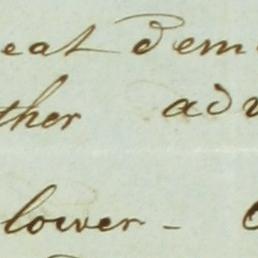 eat dem
ther adv
lower -